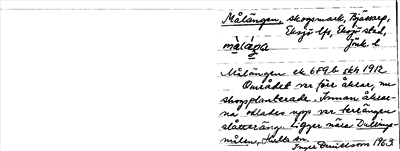 Målängen, skogsmark, Bjässarp,
Eksjö lfs, Eksjö stad,
målaŋa Jönk. l
Målängen ek 6F9b skh 1912
Området var förr åkrar, nu
skogsplanterade. Innan åkrar-
na odlades upp var terrängen
slåtteräng. Ligger nära
målen, Hults sn.
Inger Danielsson 1963